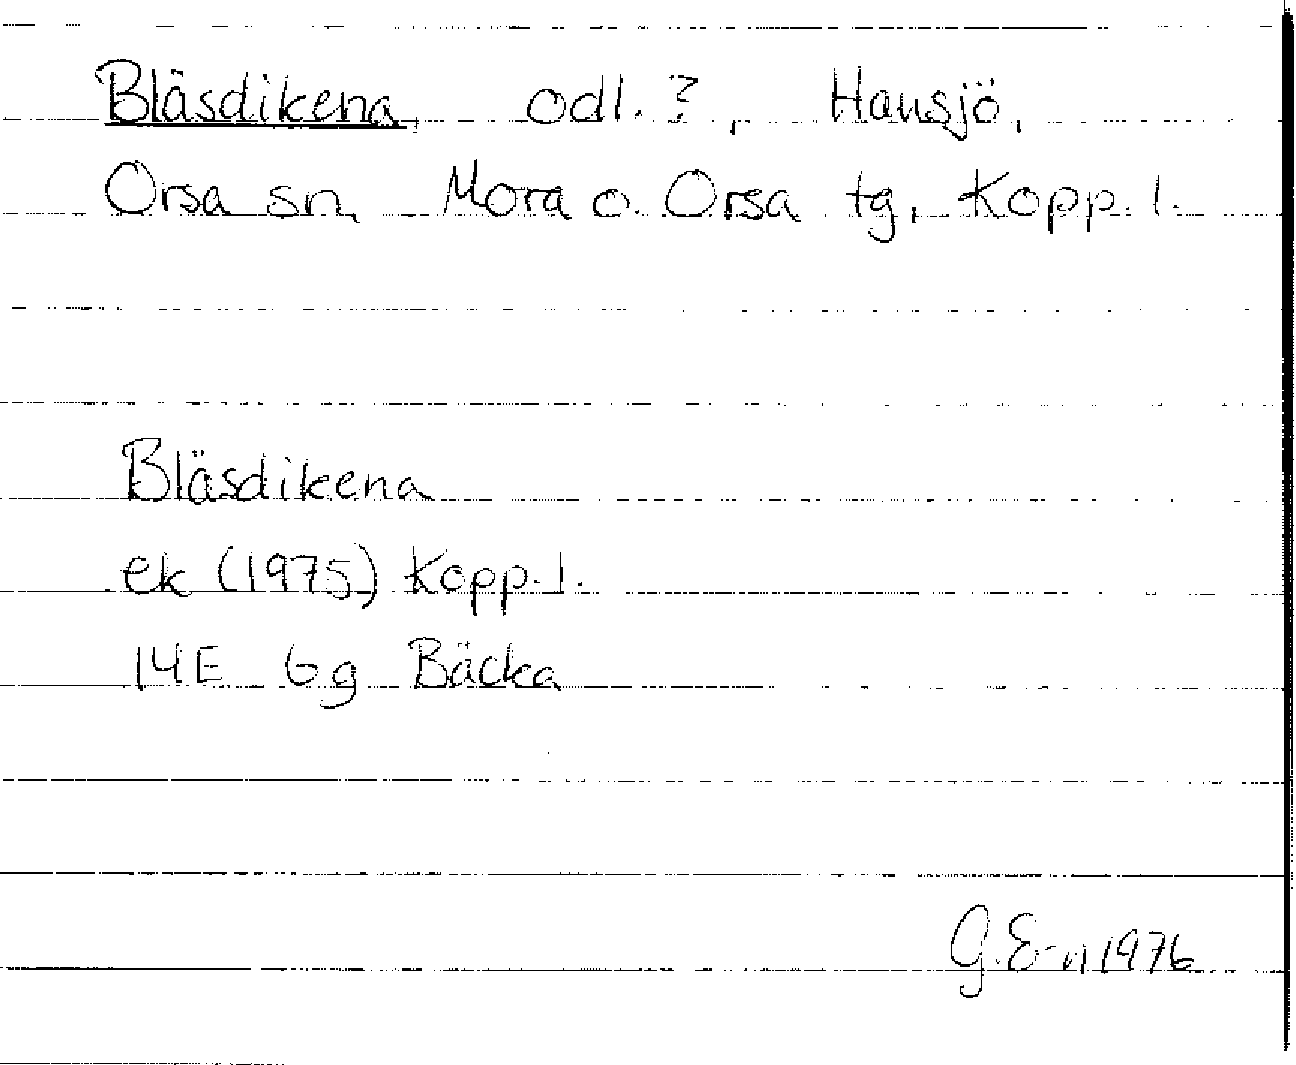 Bläsdikena, odl. ?, Hansjö,
Orsa sn, Mora o. Orsa tg, Kopp. l.
Bläsdikena
ek (1975) Kopp. l.
14E 6g Bäcka
G. E-n 1976